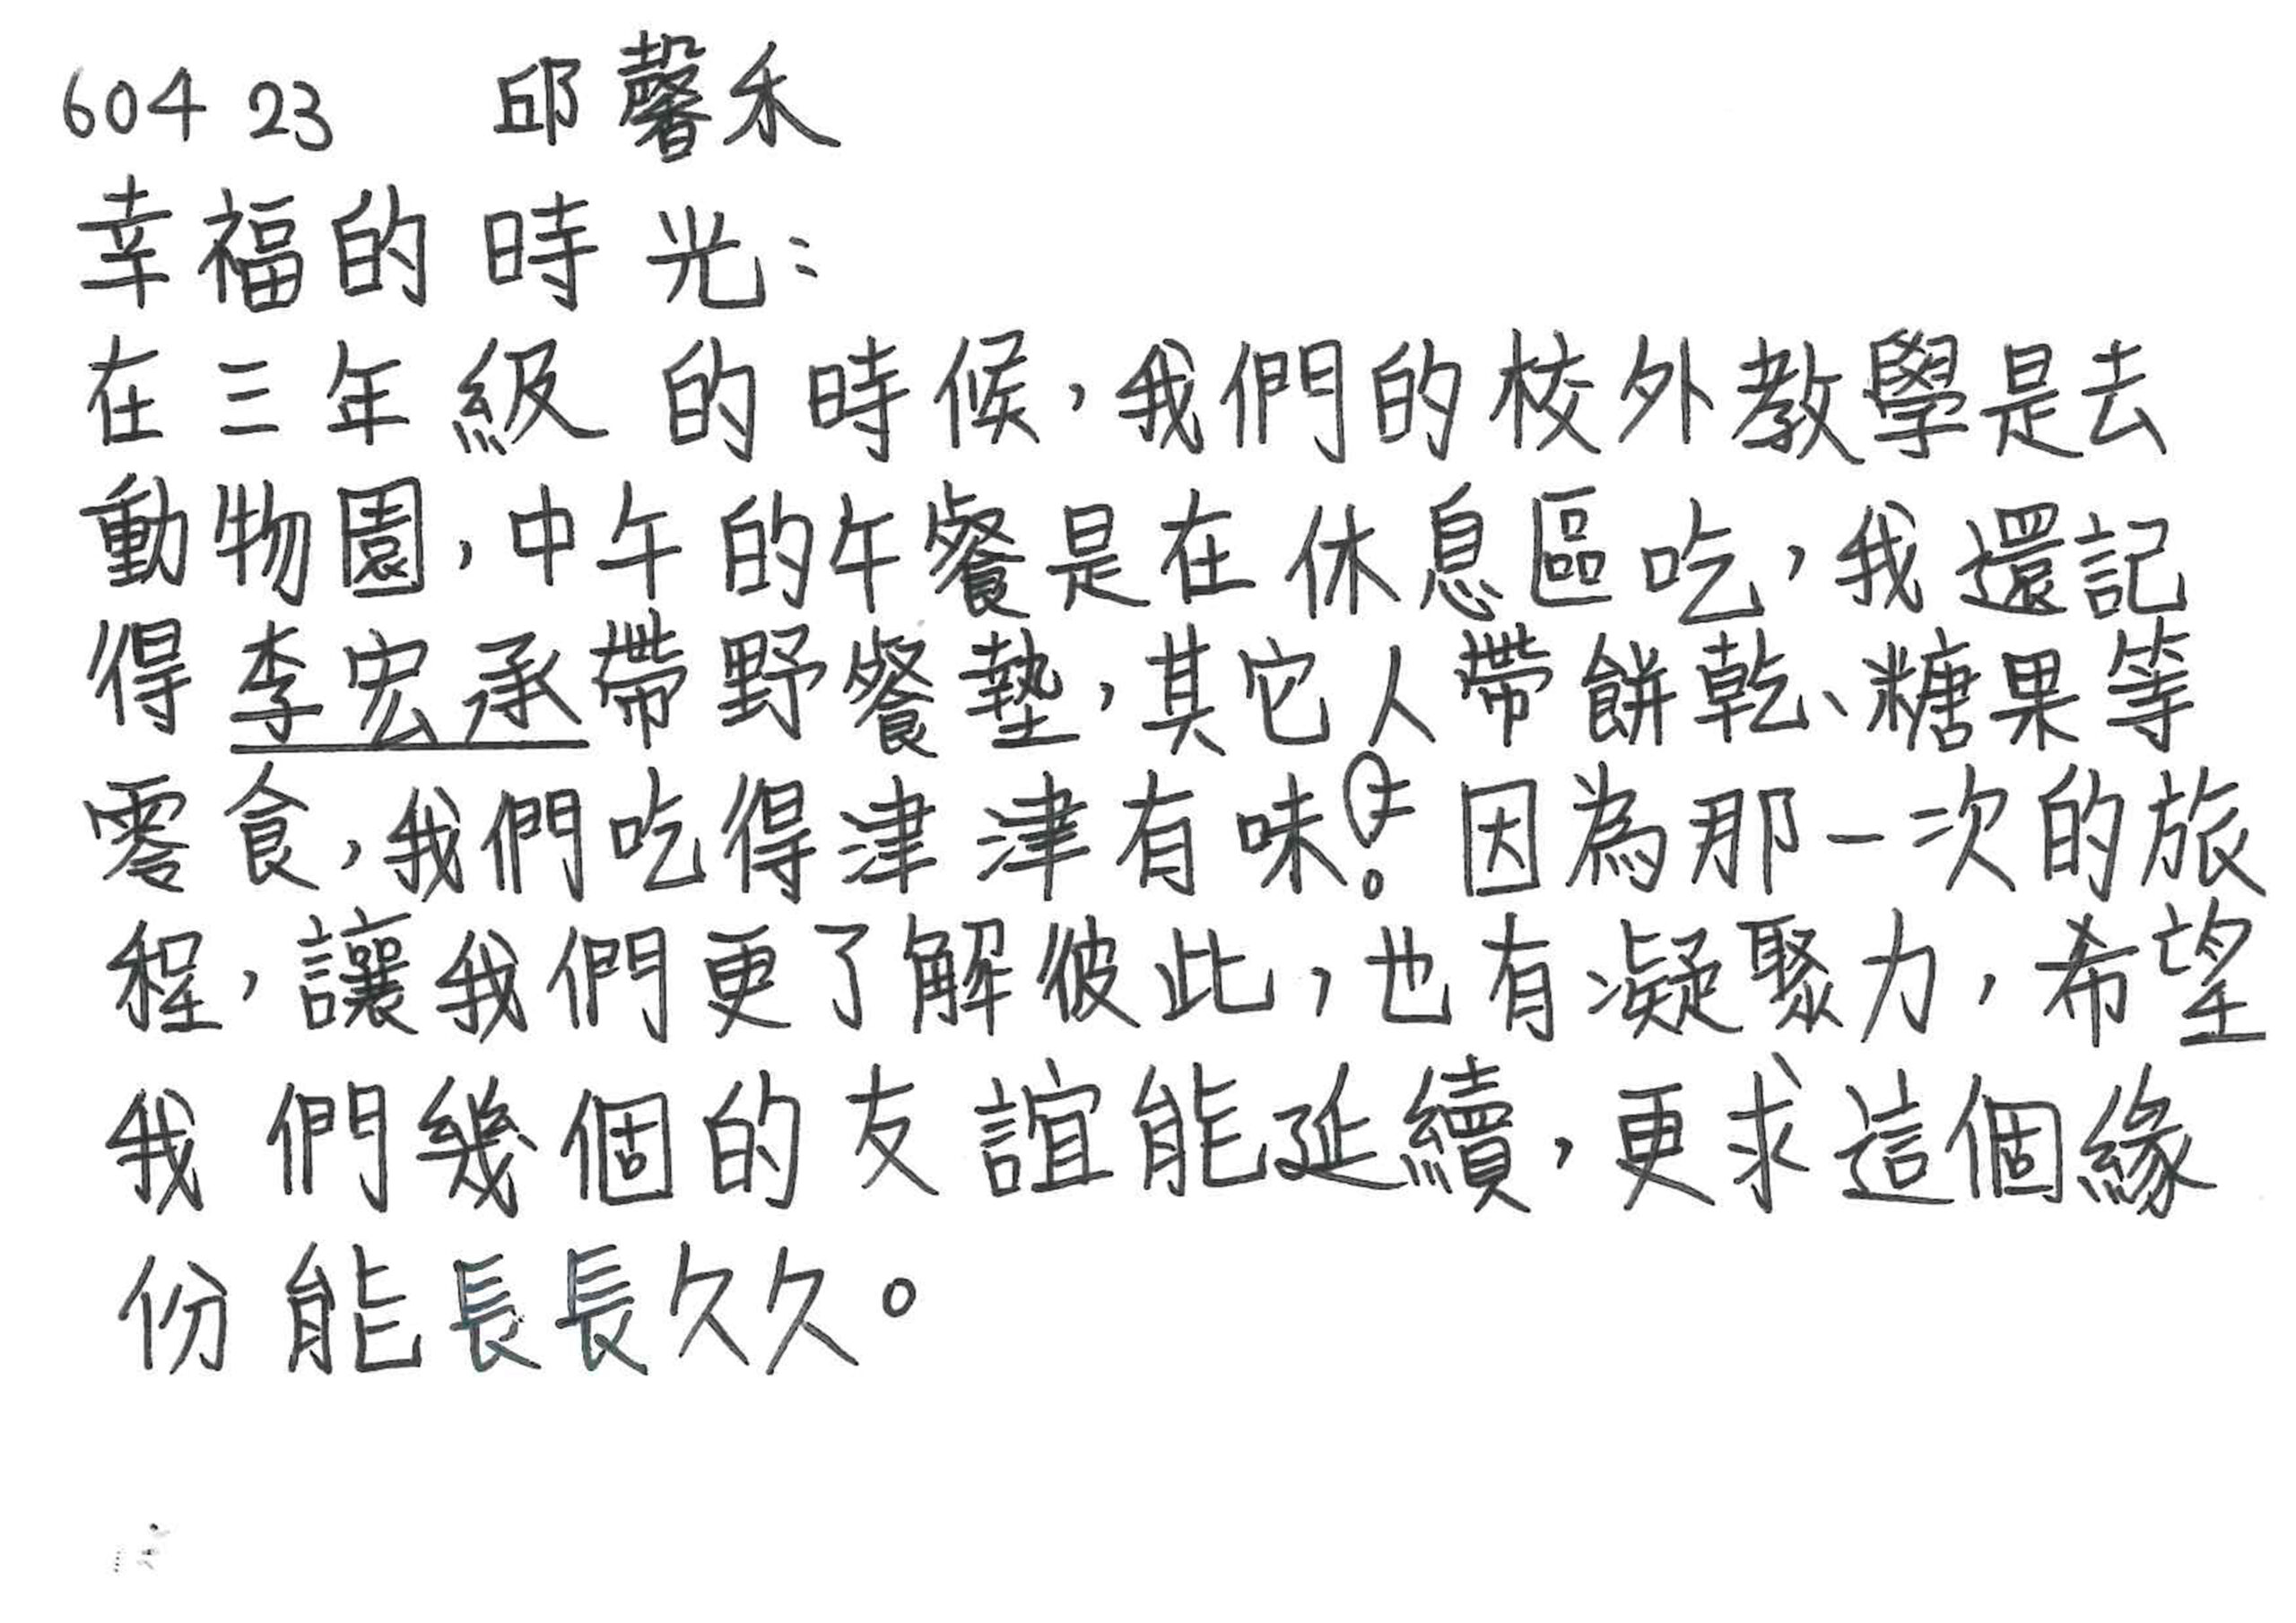 604 23 邱馨禾
幸福的時光：
在三年級的時候，我們的校外教學是去
動物園，中午的午餐是在休息區吃，我還記
得李宏承帶野餐墊，其它人帶餅乾、糖果等
零食，我們吃得津津有味。因為那一次的旅
程，讓我們更了解彼此，也有凝聚力，希望
我們幾個的友誼能延續，更求這個緣
份能長長久久。